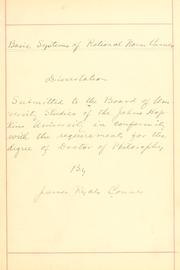 Basic Systems of Rational Norm Curves
Dissertation
Submitted to the Board of Uni-
versity Studies of the Johns Hop-
kins University in conformity
with the requirements for the
degree of Doctor of Philosophy
By
James Ryals Conner